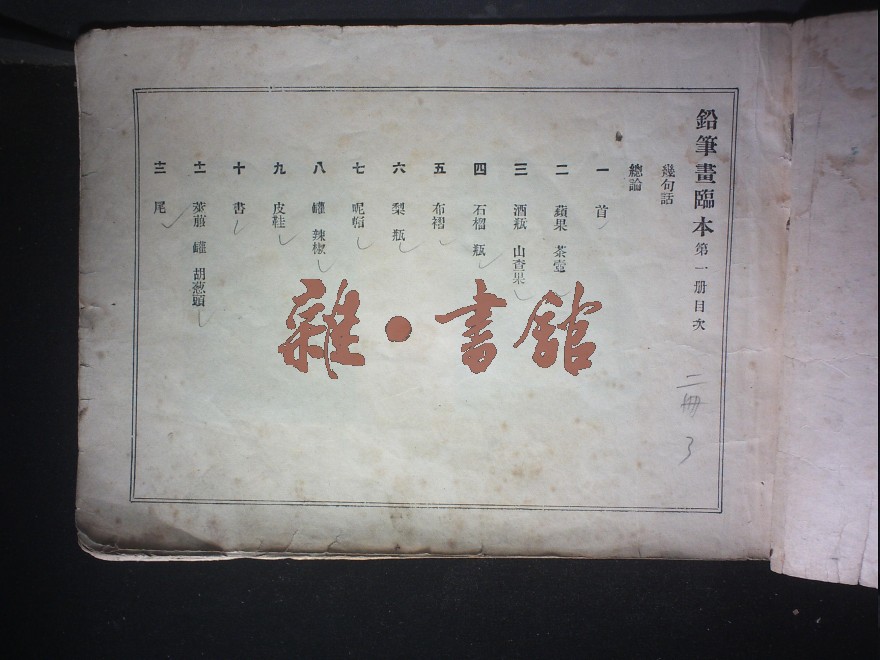 鉛筆畫臨本 第一册目次
幾句話
總論
一 首
二 蘋果 茶壺
三 酒瓶 山查果
四 石榴 瓶
五 布褶
六 梨 瓶
七 呢帽
八 罐 辣椒
九 皮鞋
十 書
十一 萊菔 罐 胡葱頭
十二 尾
二册
3
雜·書館